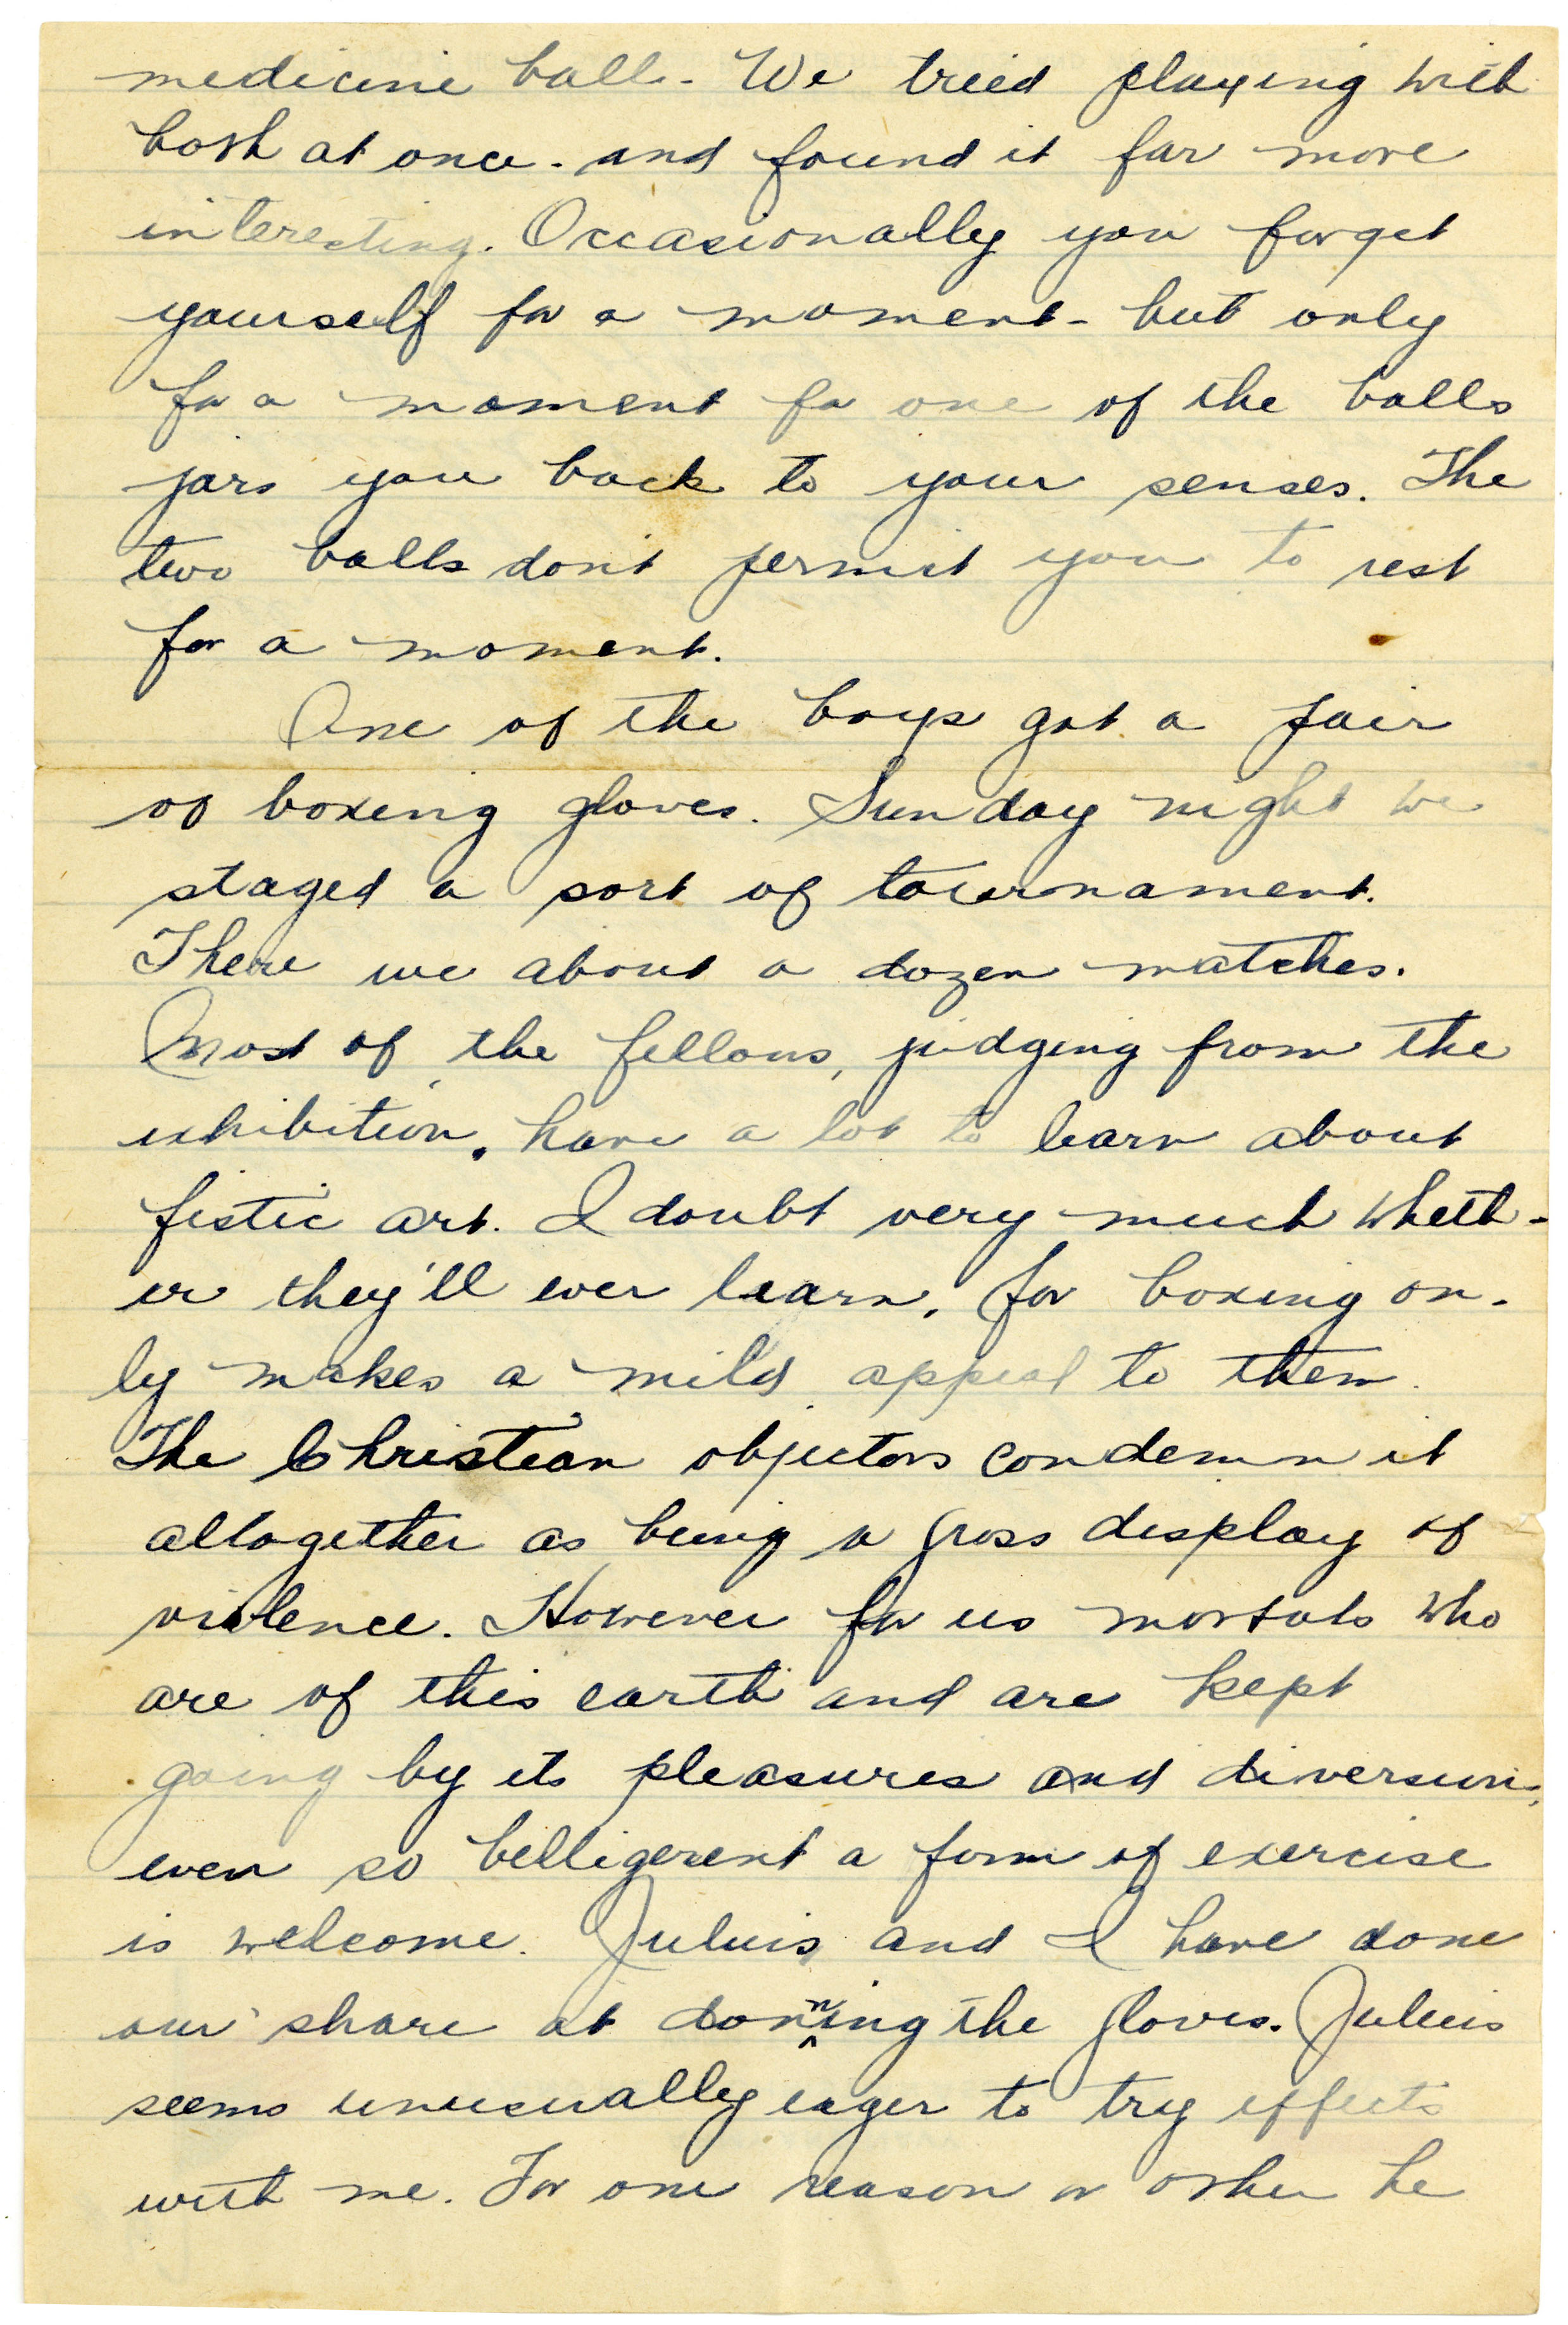 medicine ball - We tried playing with
both at once - and found it far more
interesting. Occasionally you forget
yourself for a moment - but only
for a moment for one of the balls
jars you back to your senses. The
two balls don't permit you to rest
for a moment.
One of the boys got a pair
of boxing gloves. Sunday night we
staged a sort of tournament.
There we about a dozen matches.
Most of the fellows, judging from the
exhibition, have a lot to learn about
fistic art. I doubt very much wheth-
er they'll ever learn, for boxing on-
ly makes a mild appeal to them.
The Christian objectors condemn it
altogether as being a gross display of
violence. However for us mortals who
are of this earth and are kept
going by its pleasures and diversions,
even so belligerent a form of exercise
is welcome. Julius and I have done
our share at donning the gloves. Julius
seems unusually eager to try effects
with me. For one reason or other he